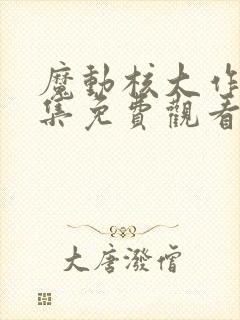 魔動核大作
集免費觀看
大唐潑僧